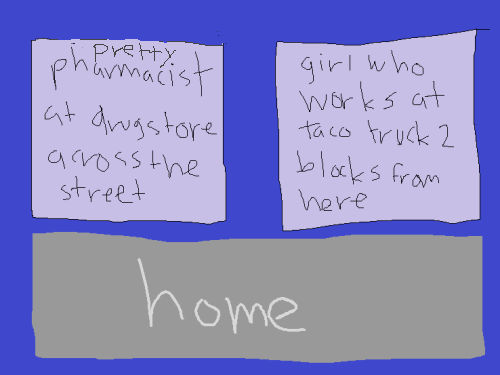 pretty
pharmacist
at drugstore
across the
street
girl who
works at
taco truck 2
blocks from
here
home